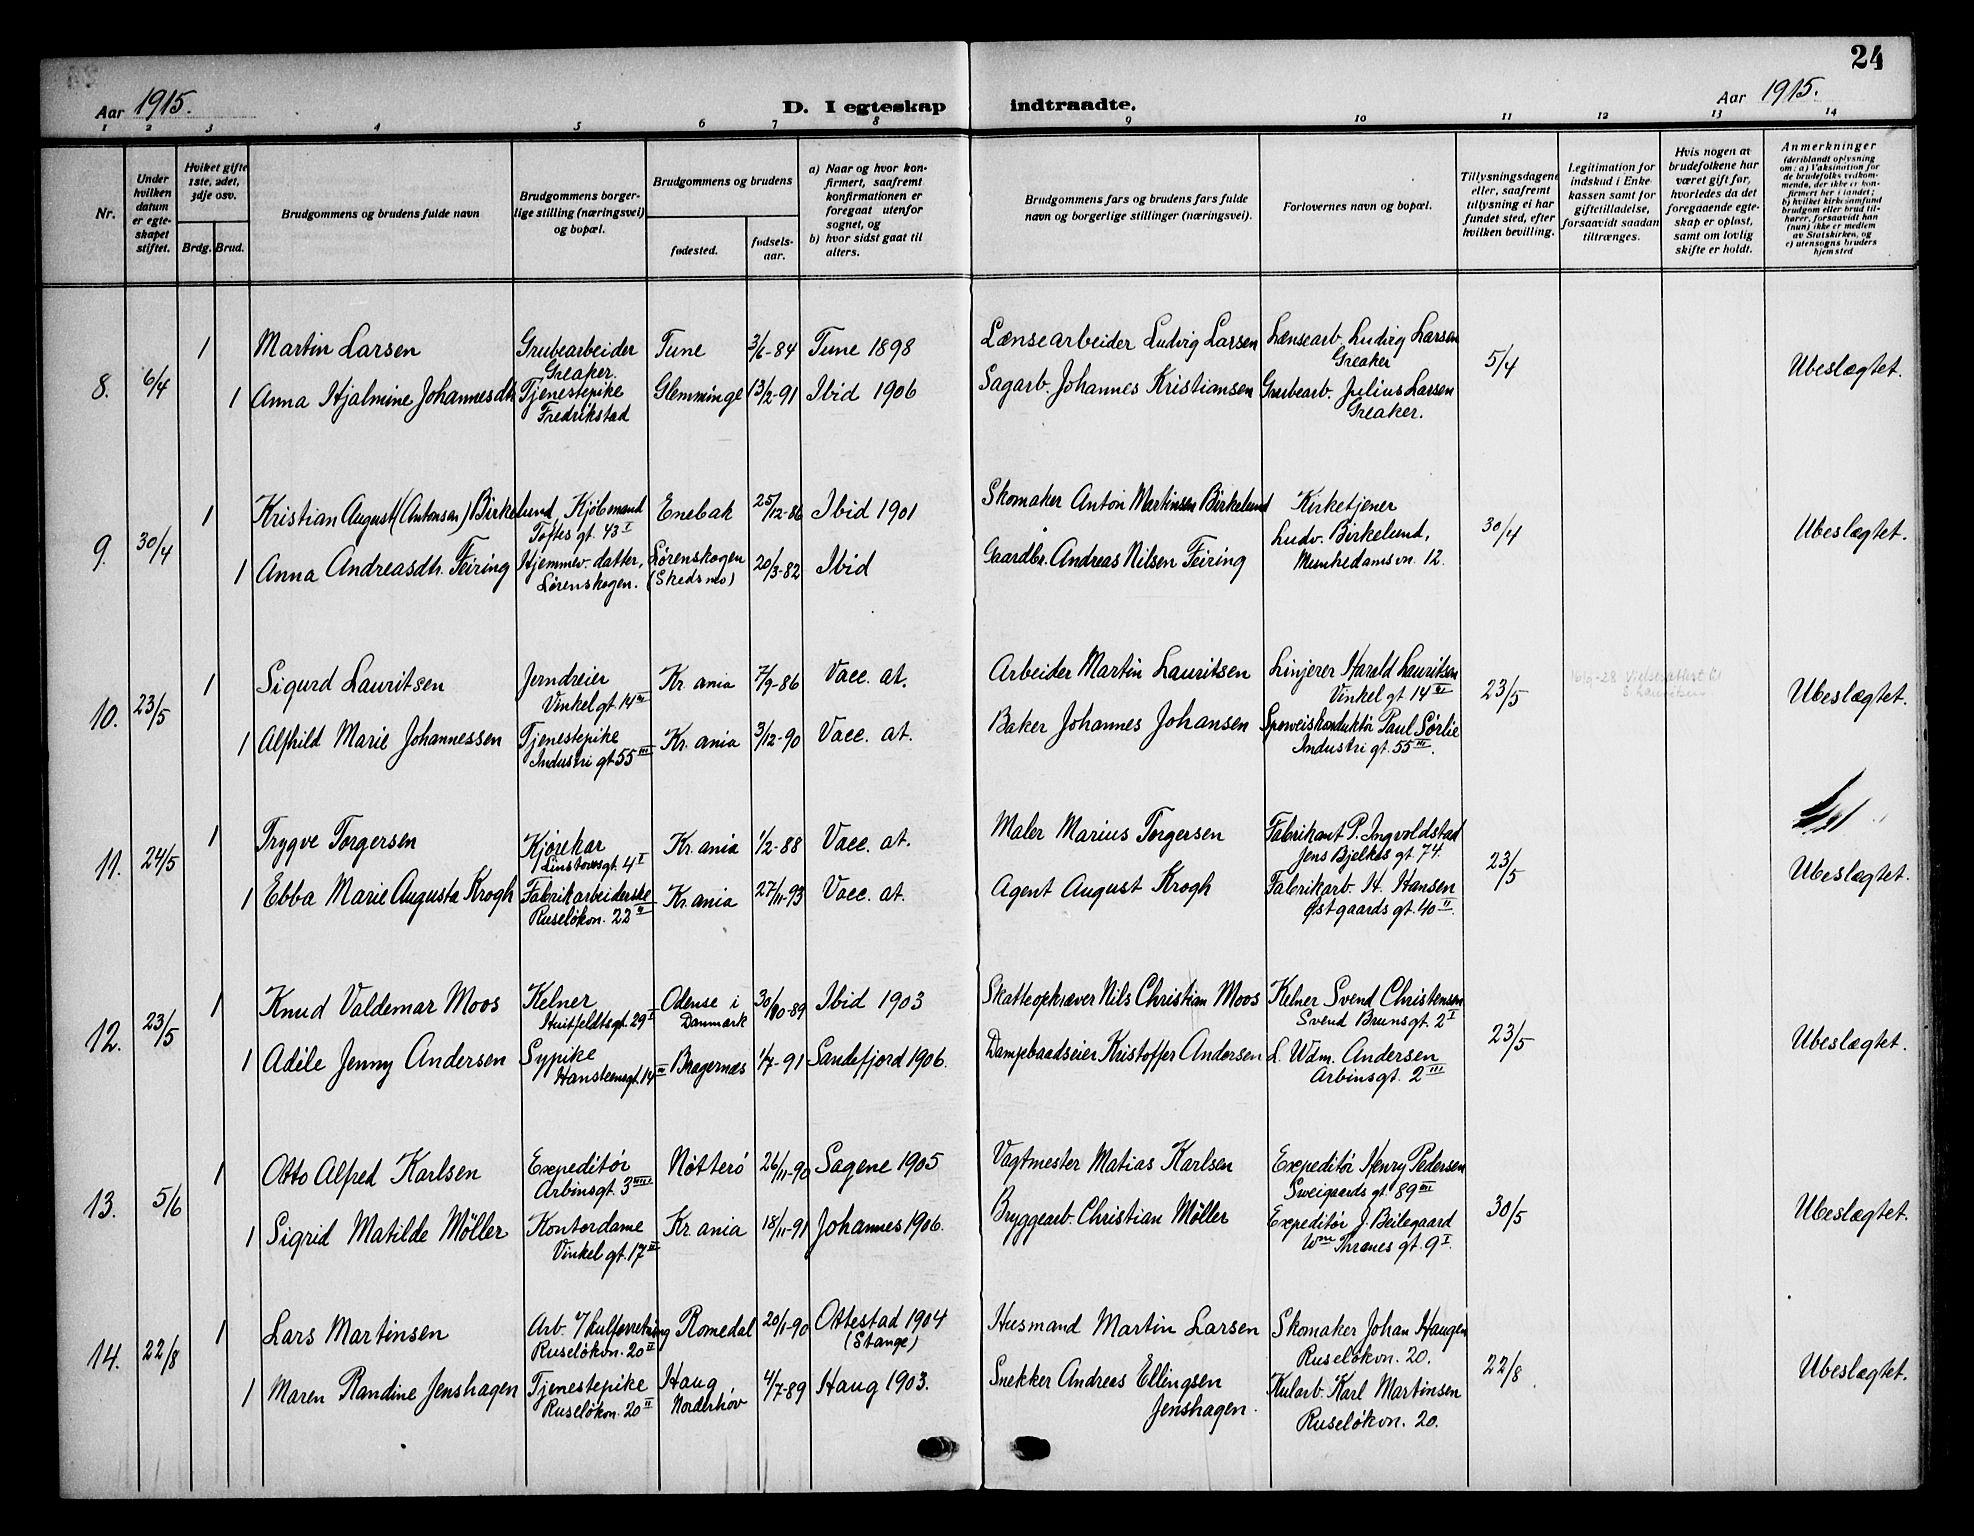 24
Aar 1915.
D. I egteskap indtraadte.
Aar 1915.
1 2 3 4 5 6 7 8 9 10 11 12 13 14
Nr.
Under hvilken datum er egteskapet stiftet.
Hvilket gifte 1ste, 2det, 3dje osv.
Brdg. Brud.
Brudgommens og brudens fulde navn
Brudgommens borgerlige stilling (næringsvei) og bopæl.
Brudgommens og brudens
fødested.
fødselsaar.
a) Naar og hvor konfirmert, saafremt konfirmationen er foregaat utenfor sognet, og
b) hvor sidst gaat til alters.
Brudgommens fars og brudens fars fulde navn og borgerlige stillinger (næringsvei).
Forlovernes navn og bopæl.
Tillysningsdagene eller, saafremt tillysning ei har fundet sted, efter hvilken bevilling.
Legitimation for indskud i Enkekassen samt for giftetilladelse, forsaavidt saadan tiltrænges.
Hvis nogen av brudefolkene har været gift før, hvorledes da det foregaaende egteskap er opløst, samt om lovlig skifte er holdt.
Anmerkninger
(deriblandt oplysning om: a) Vaksination for de brudefolks vedkommende, der ikke er konfirmert her i landet; b) hvilket kirkesamfund brudgom eller brud tilhører, forsaavidt han (hun) ikke er medlem av Statskirken, og c) utensogns bruders hjemsted
8. 6/4
1 Martin Larsen Grubearbeider Greaker. Tune 3/6-84 Tune 1898 Lænsearbeider Ludvig Larsen Lænsearb. Ludvig Larsen Greaker 5/4 Ubeslægtet.
1 Anna Hjalmine Johannesdtr. Tjenestepike Fredrikstad Glemminge 13/2-91 Ibid 1906 Sagarb. Johannes Kristiansen Grubearb. Julius Larsen Greaker.
9. 30/4
1 Kristian August (Antonsen) Birkelund, Kjøbmand Toftes gt. 43 I Enebak 25/12-86 Ibid 1901 Skomaker Anton Martinsen Birkelund Kirketjener Ludv. Birkelund, Munkedamsvn. 12. 30/4 Ubeslægtet.
1 Anna Andreasdtr. Feiring Hjemmev. datter, Lørenskogen. Lørenskogen (Skedsmo) 20/3-82 Ibid Gaardbr. Andreas Nilsen Feiring
10. 23/5
1 Sigurd Lauritsen Jerndreier Vinkelgt. 14 III Kr.ania 7/9-86 Vacc. at. Arbeider Martin Lauritsen Linjerer Harald Lauritsen Vinkelgt 14 III 23/5 16/9-28 Vielsesattest til S. Lauritsen Ubeslægtet.
1 Alfhild Marie Johannessen Tjenestepike Industrigt 55 III Kr.ania 3/12-90 Vacc. at. Baker Johannes Johansen Sporveiskonduktør Paul Sørlie Industrigt. 55 III.
11. 24/5
1 Trygve Torgersen Kjørekar Linstowsgt. 4 I Kr.ania 1/2-88 Vacc. at. Maler Marius Torgersen Fabrikant P. Ingvoldstad Jens Bjelkes gt 74. 23/5 Ubeslægtet.
1 Ebba Marie Augusta Krogh Fabrikarbeiderske Ruseløkvn. 22 II Kr.ania 27/11-93 Vacc. at. Agent August Krogh Fabrikarb. H. Hansen Østgaards gt. 40 II.
12. 23/5
1 Knud Valdemar Moos Kelner Huitfeldtsgt. 29 I Odense i Danmark 30/10-89 Ibid 1903 Skatteopkræver Nils Christian Moos Kelner Svend Christensen Svend Brunsgt. 2 I 23/5 Ubeslægtet.
1 Adéle Jenny Andersen Sypike Hansteensgt. 14 III Bragernæs 1/7-91 Sandefjord 1906. Dampbaadseier Kristoffer Andersen L. Wdm. Andersen Arbinsgt. 2 III
13. 5/6
1 Otto Alfred Karlsen Expeditør Arbinsgt. 3 IIII Nøtterö 26/11-90 Sagene 1905 Vagtmester Matias Karlsen Expeditør Henry Pedersen Sweigaards gt 89 III 30/5 Ubeslægtet.
1 Sigrid Matilde Møller Kontordame Vinkelgt. 17 II Kr.ania 18/11-91 Johannes 1906. Bryggearb. Christian Møller Expeditør J. Beilegaard Wm Thranes gt. 9 I.
14. 22/8
1 Lars Martinsen Arb. i/ kulforretning Ruseløkvn. 20 II Romedal 20/1-90 Ottestad 1904 (Stange) Husmand Martin Larsen Skomaker Johan Haugen Ruseløkvn. 20. 22/8. Ubeslægtet.
1 Maren Randine Jenshagen Tjenestepike Ruseløkvn. 20 II Haug Norderhov 4/7-89 Haug 1903. Snekker Andreas Ellingsen Jenshagen. Kularb. Karl Martinsen Ruseløkvn. 20.